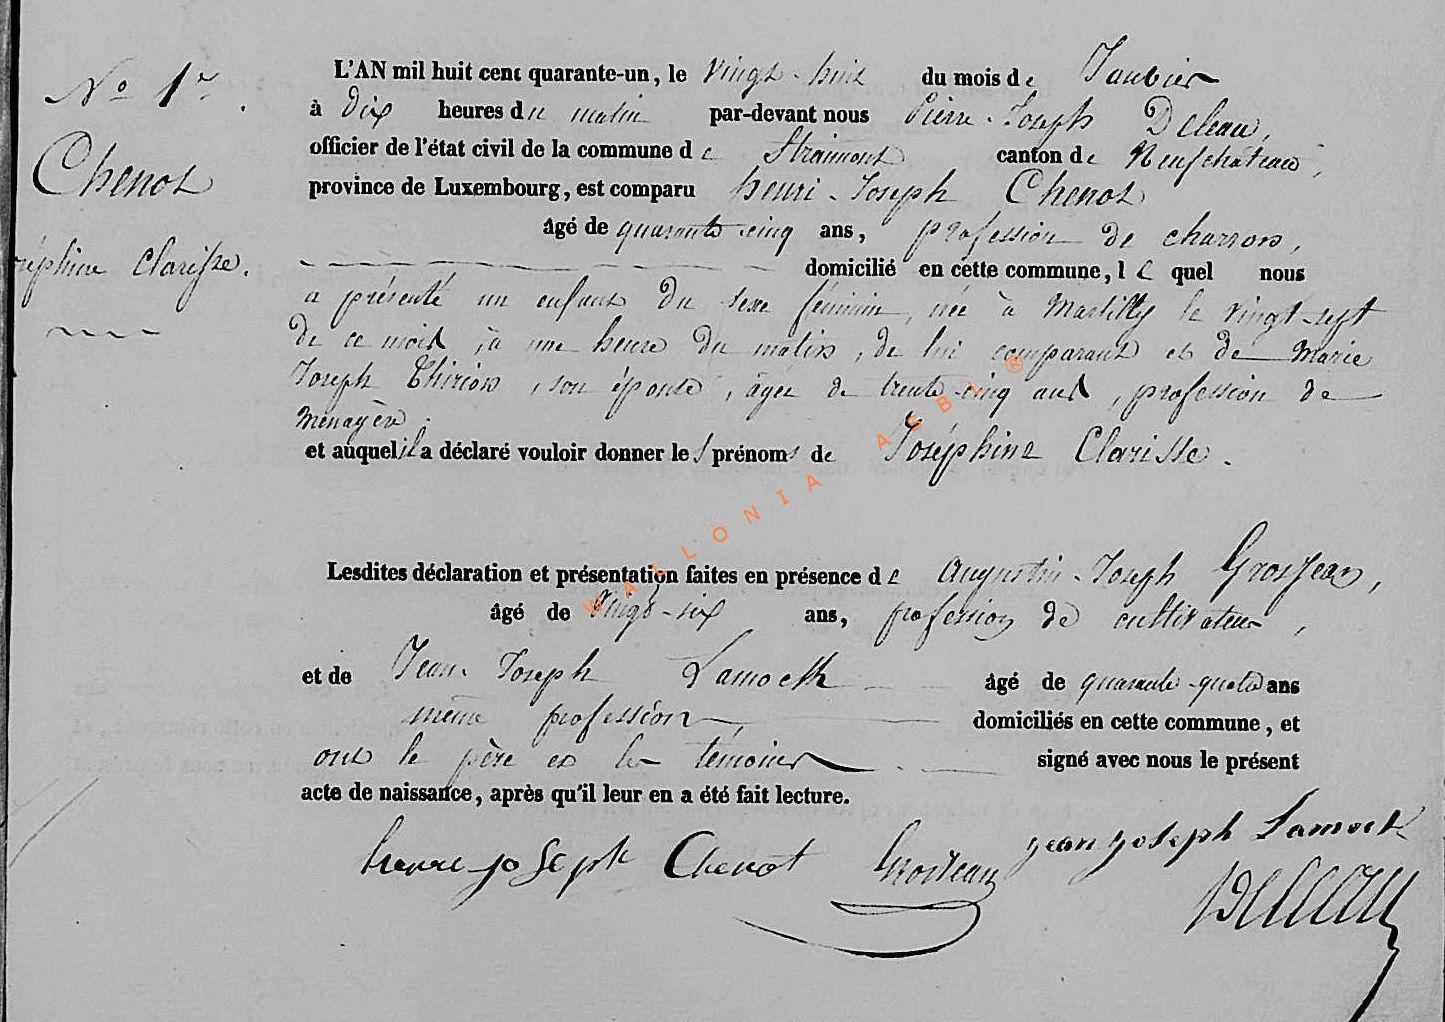 No 1er.
Chenot
Joséphine Clarisse.
L'AN mil huit cent quarante-un, le vingt-huit du mois de Janvier
à dix heures du matin par-devant nous Pierre-Joseph Deleau,
officier de l'état civil de la commune de Straimont canton de Neufchâteau,
province de Luxembourg, est comparu henri-Joseph Chenot
âgé de quarante cinq ans, profession de charron,
domicilié en cette commune, lequel nous
a présenté un enfant du sexe féminin, née à Martilly le vingt-sept
de ce mois, à une heure du matin, de lui comparant et de Marie
Joseph Thirion, son épouse, âgée de trente-cinq ans, profession de
ménagère.
et auquel il a déclaré vouloir donner les prénoms de Joséphine Clarisse.
Lesdites déclaration et présentation faites en présence de Augustin-Joseph Grosjean,
âgé de vingt-six ans, profession de cultivateur,
et de Jean-Joseph Lamock âgé de quarante-quatre ans
même profession, domiciliés en cette commune, et
ont le père et les témoins signé avec nous le présent
acte de naissance, après qu'il leur en a été fait lecture.
henri joseph Chenot Grosjean jean joseph Lamock
Deleau
WALLONIA ASBL ®